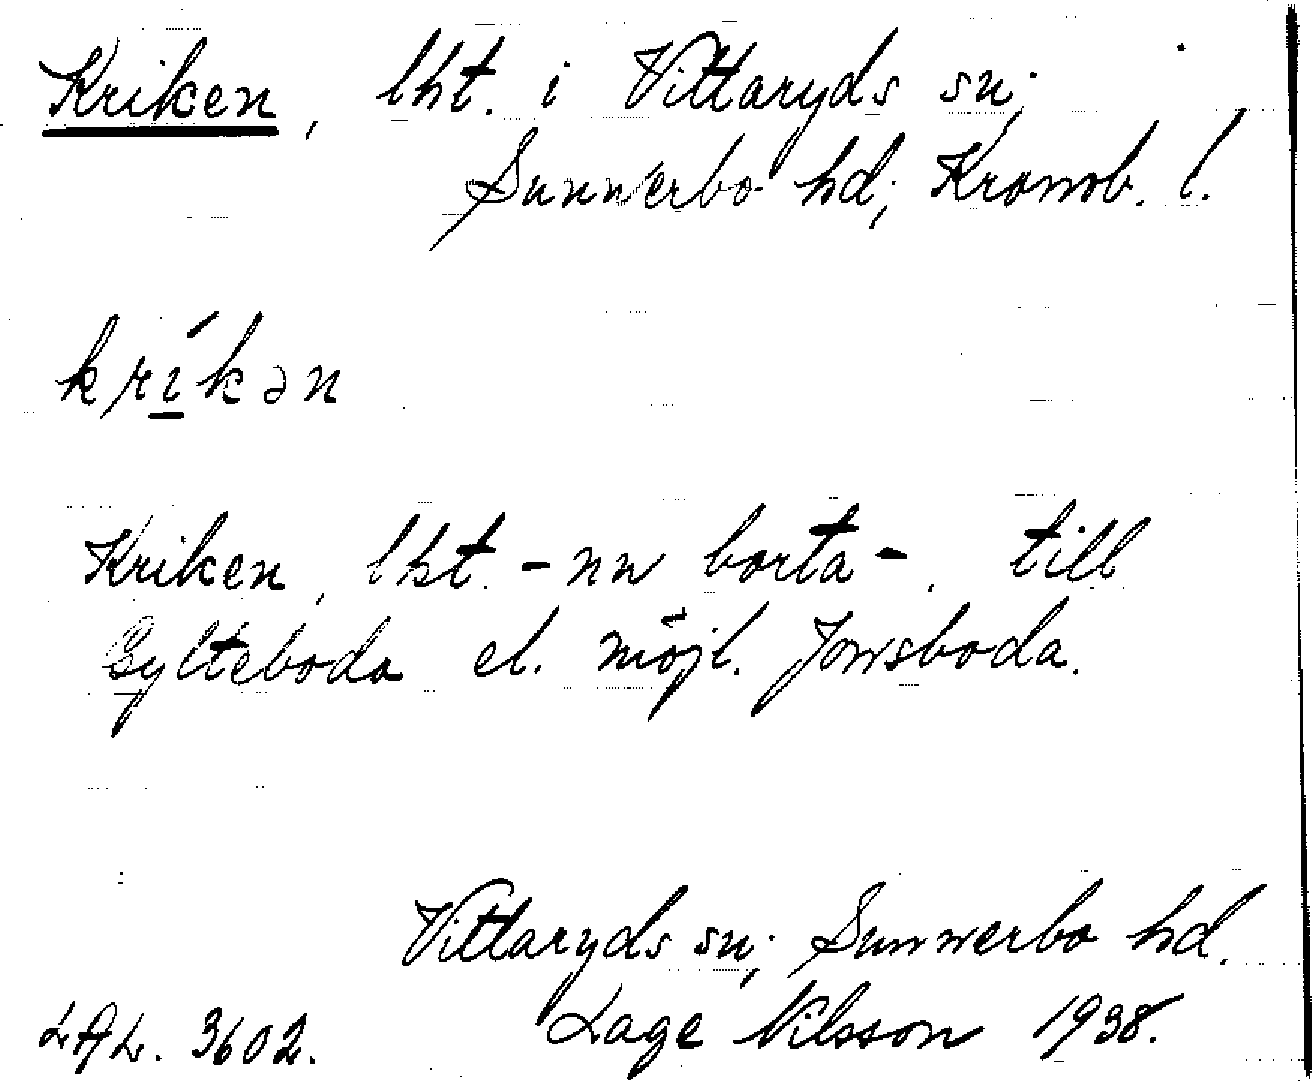 Kriken, lht. i Vittaryds sn;
Sunnerbo hd; Kronob. l.
kríkən
Kriken, lht. - nu borta -, till
Gylteboda el. möjl. Jonsboda.
Vittaryds sn; Sunnerbo hd.
LAL. 3602. Lage Nilsson 1938.